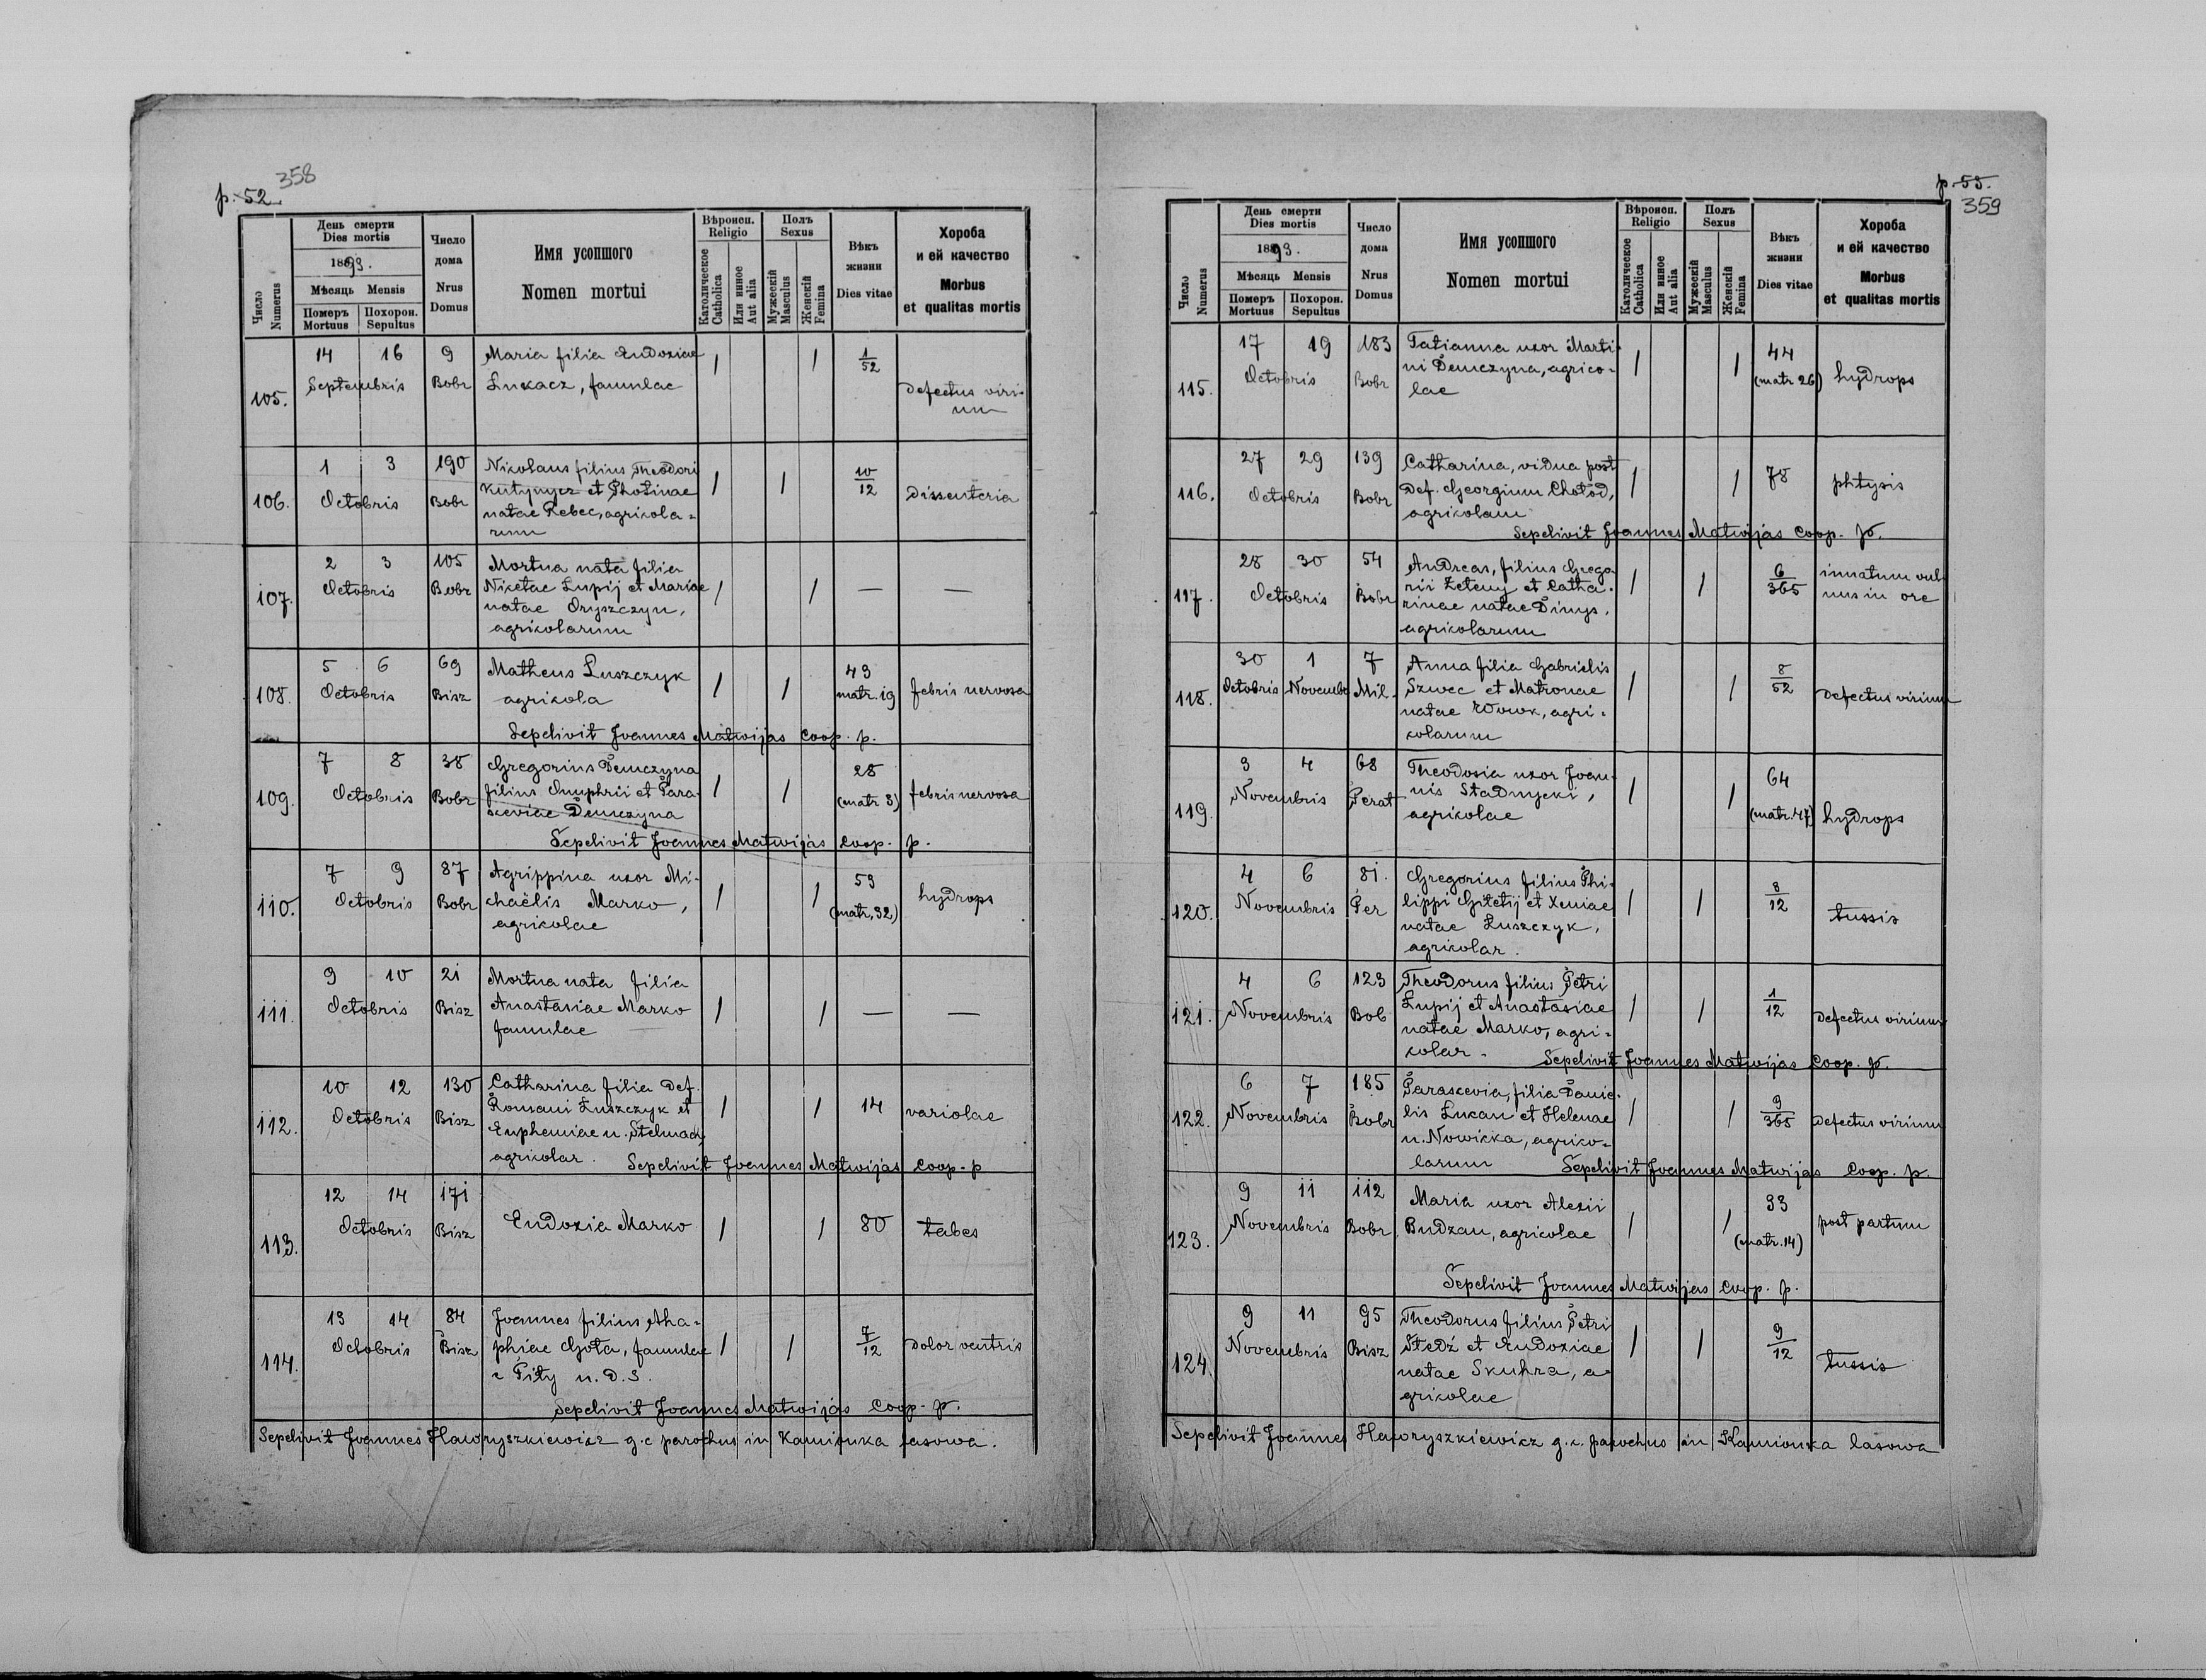 p. 52
358
День смерти
Dies mortis
1893.
Мѣсяць Mensis
Померъ
Mortuus
Похорон.
Sepultus
Число
Numerus
Число
дома
Nrus
Domus
Имя усопшого
Nomen mortui
Вѣроисп.
Religio
Католическое
Catholica
Или инное
Aut alia
Полъ
Sexus
Мужескій
Masculus
Женскій
Femina
Вѣкъ
жизни
Dies vitae
Хороба
и ей качество
Morbus
et qualitas mortis
105. 14 16 Septembris 9 Bobr
Maria filia Eudoxiae
Lukacz, famulae
/ / 1/52 Defectus viri-
um
106. 1 3 Octobris 190 Bobr
Nikolaus filius Theodori
Kutynycz et Photinae
natae Rebec, agrikola-
rum
/ / 10/12 Dissenteria
107. 2 3 Octobris 105 Bobr
Mortua nata filia
Niketae Łupij et Mariae
natae Oryszczyn,
agrikolarum
/ / — —
108. 5 6 Octobris 69 Bisz
Matheus Łuszczyk
agrikola
/ / 49 matr. 19 febris nervosa
Sepelivit Joannes Matwijas coop. p.
109. 7 8 Octobris 38 Bobr
Gregorius Demczyna
filius Onuphrii et Para-
sceviae Demczyna
/ / 28 (matr 3) febris nervosa
Sepelivit Joannes Matwijas coop. p.
110. 7 9 Octobris 87 Bobr
Agrippina uxor Mi-
chaëlis Marko,
agrikolae
/ / 53 (matr. 32) hydrops
111. 9 10 Octobris 21 Bisz
Mortua nata filia
Anastasiae Marko
famulae
/ / — —
112. 10 12 Octobris 130 Bisz
Catharina filia def.
Romani Łuszczyk et
Euphemiae n. Stelmach
agrikolar.
/ / 14 variolae
Sepelivit Joannes Matwijas coop. p
113. 12 14 Octobris 171 Bisz
Eudoxia Marko
/ / 80 tabes
114. 13 14 Octobris 84 Bisz
Joannes filius Aha-
phiae Gota, famulae
e Pity n. D. S.
/ / 7/12 Dolor ventris
Sepelivit Joannes Matwijas coop. p.
Sepelivit Joannes Hawryszkiewicz g. c parochus in Kamionka lasowa.
p. 53.
359
День смерти
Dies mortis
1893.
Мѣсяць Mensis
Померъ
Mortuus
Похорон.
Sepultus
Число
Numerus
Число
дома
Nrus
Domus
Имя усопшого
Nomen mortui
Вѣроисп.
Religio
Католическое
Catholica
Или инное
Aut alia
Полъ
Sexus
Мужескій
Masculus
Женскій
Femina
Вѣкъ
жизни
Dies vitae
Хороба
и ей качество
Morbus
et qualitas mortis
115. 17 19 Octobris 183 Bobr
Tatianna uxor Marti-
ni Demczyna, agrico-
lae
/ / 44 (matr 26) hydrops
116. 27 29 Octobris 139 Bobr
Catharina, vidua post
Def. Georgium Chołod,
agrikolam
/ / 78 phtysis
Sepelivit Joannes Matwijas coop. p.
117. 28 30 Octobris 54 Bobr
Andreas, filius Grego-
rii Zeteny et Catha-
rinae natae Dinys,
agrikolarum
/ / 6/365 innatum vul-
nus in ore
118. 30 Octobris 1 Novembr 7 Mil.
Anna filia Gabrielis
Szwec et Matronae
natae Wowk, agri-
kolarum
/ / 8/52 Defectus virium
119. 3 4 Novembris 68 Perat
Theodosia uxor Joan-
nis Stadnycki,
agrikolae
/ / 64 (matr. 47) hydrops
120. 4 6 Novembris 81. Per
Gregorius filius Phi-
lippi Gitetij et Xeniae
natae Łuszczyk,
agrikolar.
/ / 8/12 tussis
121. 4 6 Novembris 123 Bob
Theodorus filius Petri
Łupij et Anastasiae
natae Marko, agri-
kolar.
/ / 1/12 Defectus virium
Sepelivit Joannes Matwijas coop. p.
122. 6 7 Novembris 185 Bobr
Parascevia, filia Danie-
lis Lukan et Helenae
n. Nowicka, agriko-
larum
/ / 9/365 Defectus virium
Sepelivit Joannes Matwijas coop. p.
123. 9 11 Novembris 112 Bobr
Maria uxor Alexii
Budzan, agricolae
/ / 33 (matr. 14) post partum
Sepelivit Joannes Matwijas coop. p.
124. 9 11 Novembris 95 Bisz
Theodorus filius Petri
Stedź et Eudoxiae
natae Skuhra, a-
grikolae
/ / 9/12 tussis
Sepelivit Joannes Hawryszkiewicz g. c. parochus in Kamionka lasowa